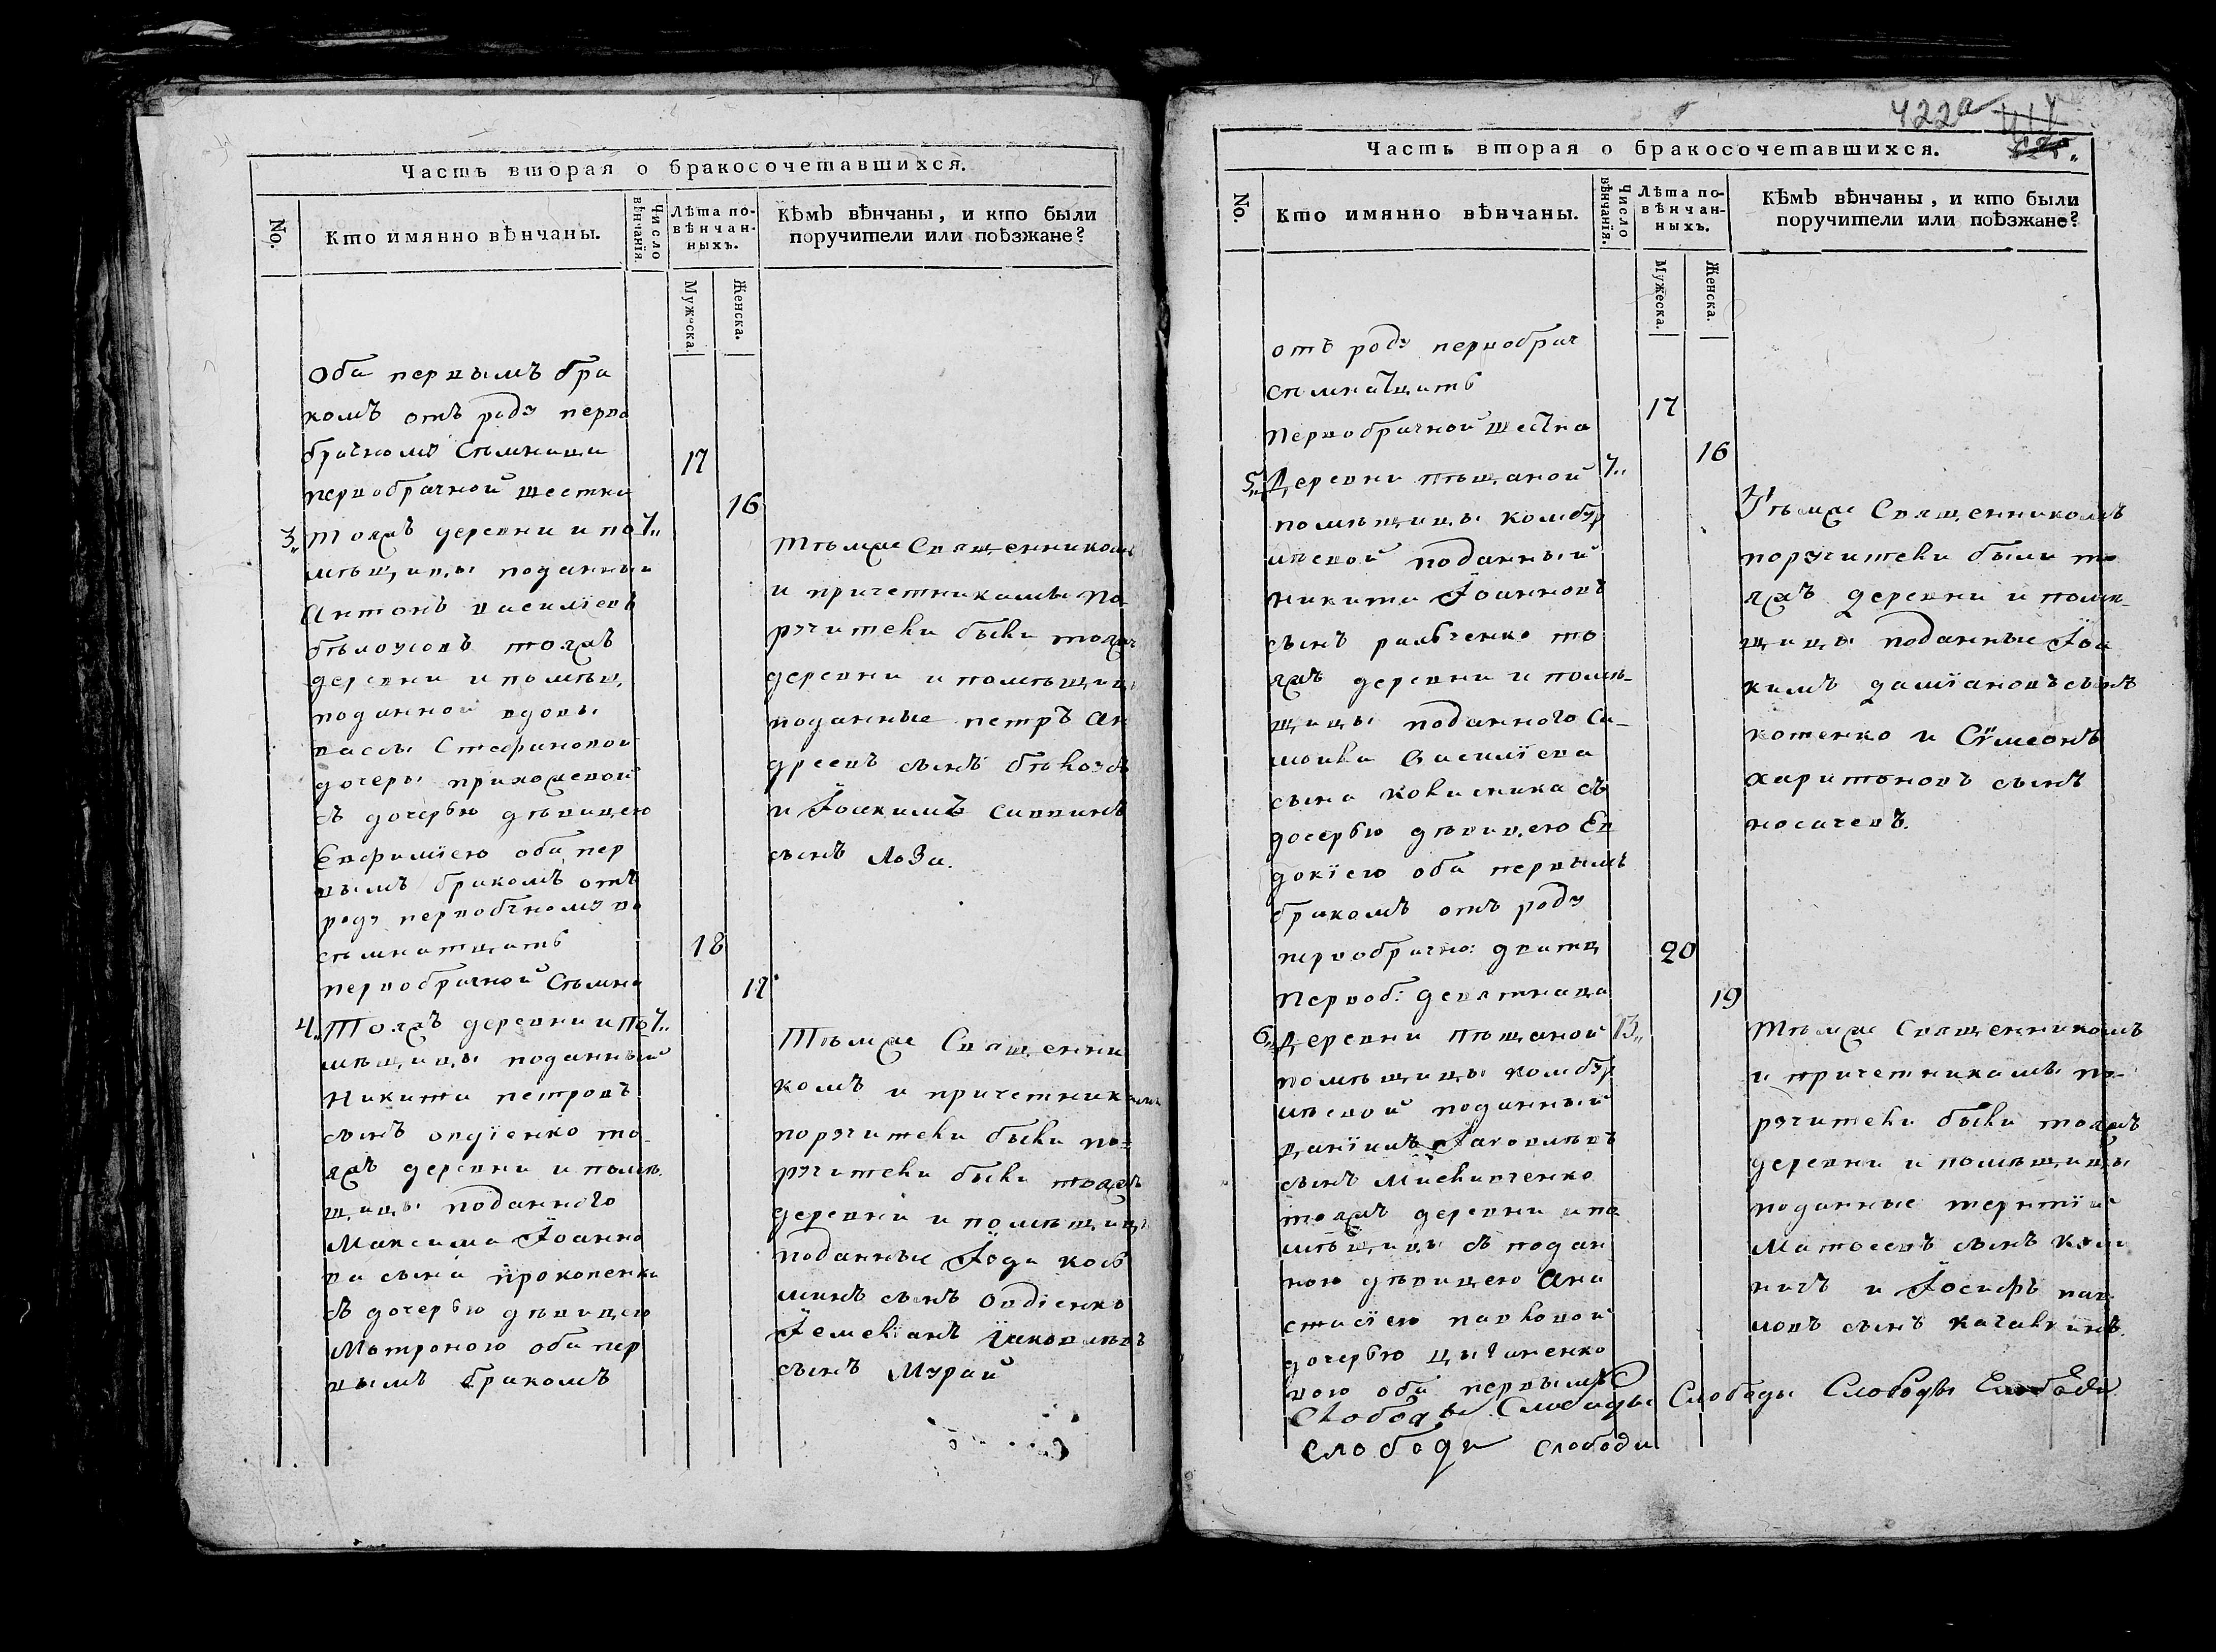 Часть вторая о бракосочетавшихся.
No.
Кто имянно вѣнчаны.
Число вѣнчанія.
Лѣта по-
вѣнчан-
ныхъ.
Мужеска.
Женска.
Кѣмъ вѣнчаны, и кто были
поручители или поѣзжане?
Оба первымъ бра
комъ отъ роду перво
брачному Сѣмнаца
17
первобрачной шестна
16
3,, Тояжъ деревни и по 7,,
мѣщицы поданный
Антонъ василіевъ
бѣлоусовъ тояжъ
деревни и помѣщ,
поданной вдовы
вассы Стефановой
дочеры
съ дочерью дѣвицею
Евфиміею оба пер
вымъ бракомъ отъ
роду первобчному во
сѣмнатцать
18
первобрачной Сѣмна
17
Тѣмже Священникомъ
и причетниками по
ручители были тояжъ
деревни и помѣщицы
поданные петръ Ан
дреевъ сынъ
и Іоакимъ саввинъ
сынъ Лоза.
4,, Тояжъ деревни и По 7,,
мѣщицы поданный
Никита петровъ
сынъ овдіенко то-
яжъ деревни и помѣ
щицы поданного
Максима Іоанно
ва сына прокопенка
съ дочерью дѣвицею
Матроною оба пер
вымъ бракомъ
Тѣмже Священни
комъ и причетниками
поручители были по-
ручители были тояжъ
деревни и помѣщицы
поданные
минъ сынъ Овдіенко
Іемеліанъ Іаковлевъ
сынъ Мурай
422а
Часть вторая о бракосочетавшихся.
No.
Кто имянно вѣнчаны.
Число вѣнчанія.
Лѣта по-
вѣнчан-
ныхъ.
Мужеска.
Женска.
Кѣмъ вѣнчаны, и кто были
поручители или поѣзжане?
отъ роду первобрач
сѣмнатцать
17
Первобрачной шестна
16
5,, Деревни пѣщаной 7,,
помѣщицы комбур
лѣевой поданный
никита Іоанновъ
сынъ ральченко то
яжъ деревни и помѣ-
щицы поданного Са-
мойла Василіева
сына
дочерью дѣвицею Ев
докіею оба первымъ
бракомъ отъ роду
первобрачно: дватц
20
Первоб: девятнаца
19
Тѣмже Священникомъ
поручители были то
яжъ деревни и помѣ-
щицы поданные Іоа
кимъ даміановъ сынъ
котенко и Сѵмеонъ
харитоновъ сынъ
носачевъ.
6,, Деревни пѣщаной 13,,
помѣщицы комбур
лѣевой поданный
Даніилъ Іаковлевъ
сынъ
тояжъ деревни и по
мѣщицы съ подан
ною дѣвицею Ана
стасіею павловой
дочерью цыганенко
вою оба первымъ
Тѣмже Священникомъ
и причетниками по-
ручители были тояжъ
деревни и помѣщицы
поданные терентій
Матѳеевъ сынъ
и Іосифъ пав
ловъ сынъ
Слободы Слободы Слободы Слободы Слободы
Слободы слободы